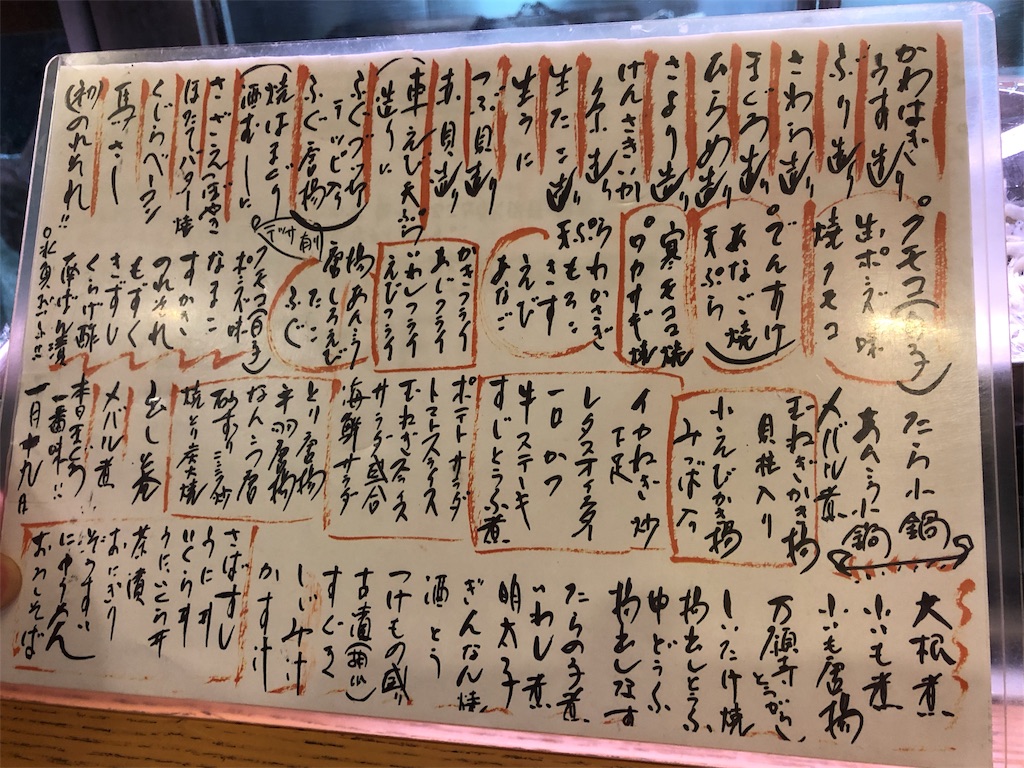 かわはぎ
うす造り
ぶり造り
さわら造り
まぐろ造り
ひらめ造り
さより造り
けんさきいか
糸造り
生たこ造り
生うに
つぶ貝造り
赤貝造り
車えび天ぷら
造りに
ふぐぶつ切り
テッピ入り
ふぐ唐揚
焼はまぐり
酒むしに
さざえつぼやき
ほたてバター焼
くじらベーコン
馬さし
(初)のれそれ!!
°クモコ(白子)
生ポンズ味
焼クモコ
°でんすけ
あなご焼
天ぷら
寒モロコ焼
°ワカサギ焼
°わかさぎ
天ぷら
もろこ
きす
えび
あなご
かきフライ
あじフライ
いわしフライ
えびフライ
揚あんこう
唐しろえび
たこ
ふぐ
テッサ有り
°クモコ(白子)
ポンズ味
なまこ
すがき
のれそれ
もずく
きずし
くらげ酢
たら小鍋
あんこう小鍋
メバル煮
玉ねぎかき揚
貝柱入り
小えびかき揚
みつば入り
イカねぎ炒
下足
レタス
一口かつ
牛ステーキ
すじとうふ煮
ポテトサラダ
トマトスライス
玉ねぎスライス
サラダ盛合
海鮮サラダ
とり唐揚
手羽唐揚
なんこつ唐
砂ずり
焼とり炭火焼
出し巻
メバル煮
本日まぐろ
一番味!!
一月十九日
大根煮
小いも煮
小いも唐揚
万願寺とうがらし
しいたけ焼
揚出しとうふ
ゆどうふ
揚出しなす
たらの子煮
いわし煮
明太子
ぎんなん焼
酒とう
つけもの盛り
古漬
すぐき
しじみ汁
かす汁
さばずし
うに丼
いくら丼
うにいくら丼
茶漬
おにぎり
ぞうすい
にゅうめん
おろしそば